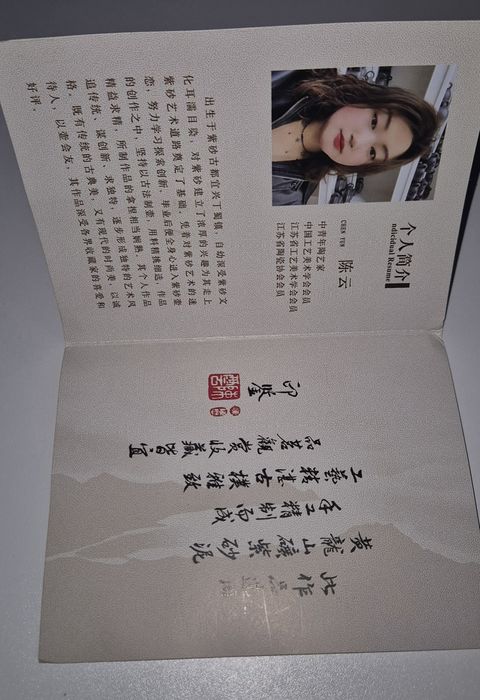 个人简介
ndicidual Resume
陈云
CHEN YUN
中青年陶艺家
中国工艺美术学会会员
江苏省工艺美术学会会员
江苏省陶瓷协会会员
出生于紫砂古都宜兴丁蜀镇，自幼深受紫砂文
化耳濡目染，对紫砂建立了浓厚的兴趣为其走上
紫砂艺术道路奠定了基础，凭着对紫砂艺术的迷
恋，努力学习探索创新。毕业后便全身心进入紫砂壶
的创作之中，坚持以古法制壶，用料精挑细选，作品
精益求精，所制作品的拿捏相当娴熟。其个人作品
追传统、谋创新、求独特，逐步形成独特的艺术风
格。既有传统的古典美，又有现代的时尚美。以诚
待人，以壶会友，其作品深受各界收藏家的喜爱和
好评。
此作品
黃龍山礦紫砂泥
手工精制而成
工藝精湛古樸雅致
品茗觀賞收藏皆宜
印鑒